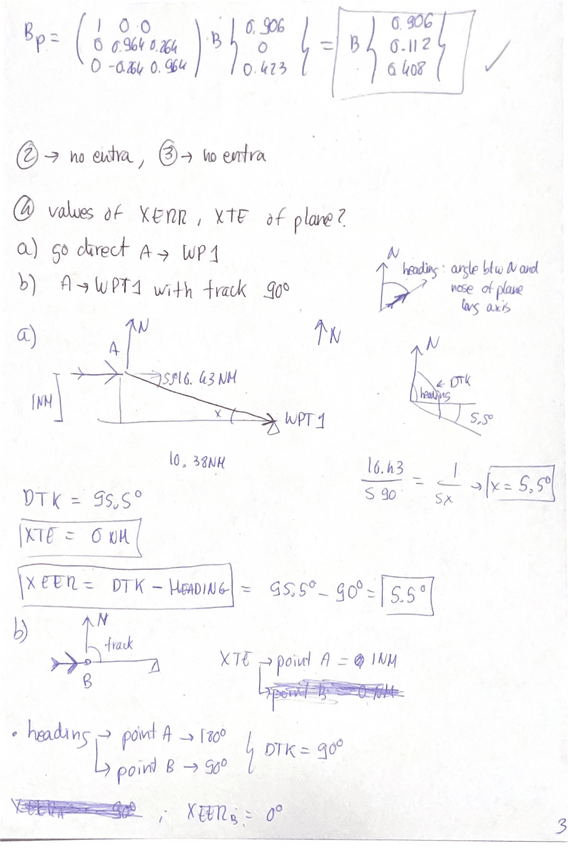 Bp = ( 1 0 0 0 0.964 0.264 0 -0.264 0.964 ) · B { 0.906 0 0.423 } = B { 0.906 0.112 0.408 } ✓
② → no entra, ③ → no entra
④ values of XERR, XTE of plane?
a) go direct A → WP1
b) A → WPT1 with track 90°
N
heading: angle b/w N and
nose of plane
long axis
a)
N
A
1NM
5.5°
16.43NM
x
WPT1
10.38NM
↑N
N
DTK
heading
5.5°
16.43 / S 90 = 1 / Sx → x = 5.5°
DTK = 95.5°
XTE = 0 NM
XEER = DTK - HEADING = 95.5° - 90° = 5.5°
b)
N
track
B
XTE → point A = 1NM
→ point B = 0 NM
• heading → point A → 120°
→ point B → 90°
} DTK = 90°
XEER_A = 90° ; XEER_B = 0°
3